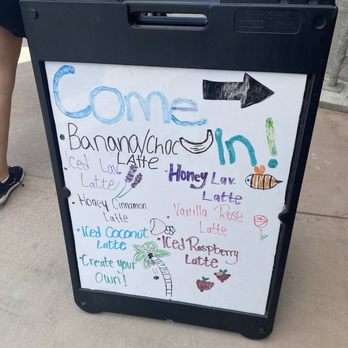 Come
In!
Banana/Choc
LATTE
Iced Lav.
Latte
Honey Lav.
Latte
Honey Cinnamon
Latte
Vanilla Rose
Latte
Iced Coconut
Latte
Iced Raspberry
Latte
Create your
Own!